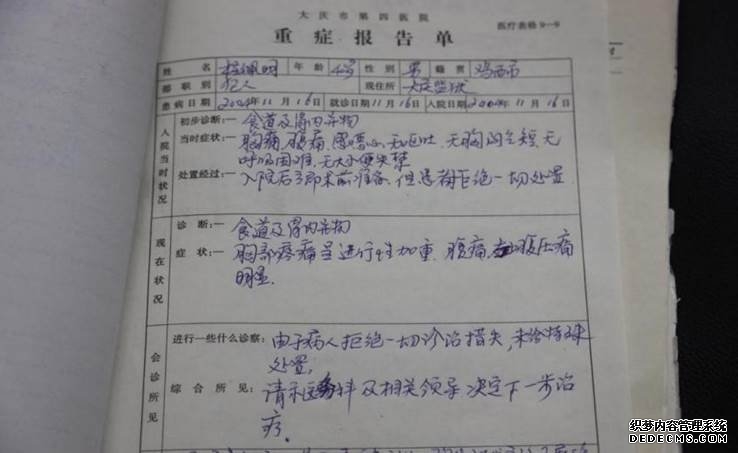 大庆市第四医院
医疗表格9—9
重症报告单
姓名 桂佩明 年龄 40岁 性别 男 籍贯 鸡西市
部职别 犯人 现住所 大庆监狱
患病日期 2004年11月16日 就诊日期 11月16日 入院日期 2004年11月16日
入院当时状况
初步诊断:— 食道及胃内异物
当时症状:— 胸痛,腹痛,恶心,无呕吐,无胸闷气短,无
呼吸困难,无大小便失禁
处置经过:— 入院后予即术前准备,但患者拒绝一切处置
现在状况
诊断:— 食道及胃内异物
症状:— 胸部疼痛呈进行性加重,腹痛,腹压痛
明显
会诊所见
进行一些什么诊察: 由于病人拒绝一切诊治措失,未给特殊
处置,
综合所见: 请示医务科及相关领导决定下一步治
疗。
织梦内容管理系统
DEDECMS.COM